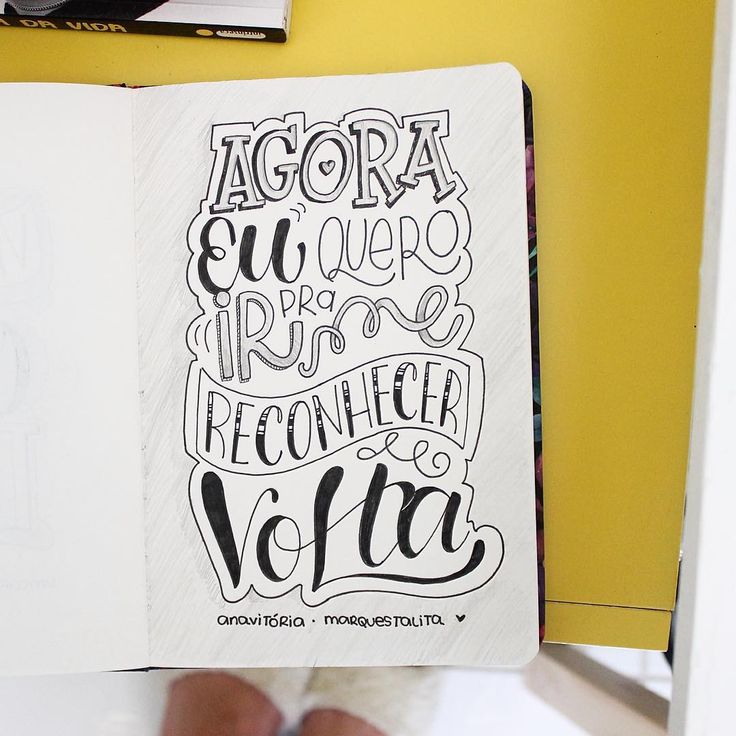 DA VIDA
AGORA
EU QUERO
IR PRA me
RECONHECER
de
Volta
anavitória · marquestalita